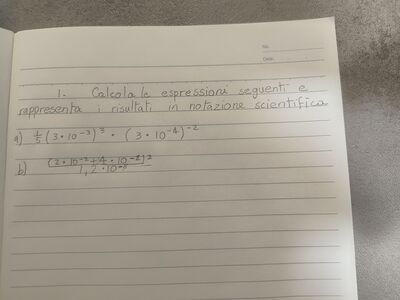 No.
Date
1. Calcola le espressioni seguenti e
rappresenta i risultati in notazione scientifica
a) 1/5 (3 · 10⁻³)³ · (3 · 10⁻⁴)⁻²
b) (2 · 10⁻² + 4 · 10⁻²)²
1,2 · 10⁻⁵